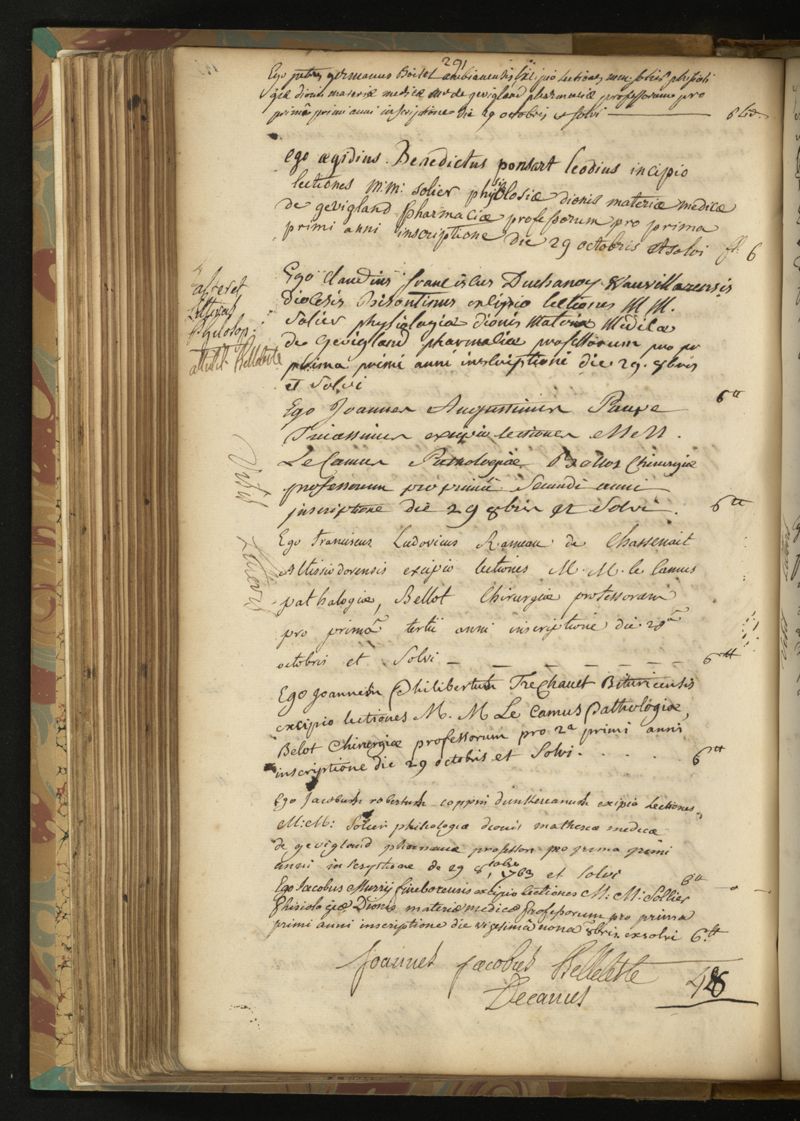 291
Ego petrus germanus Boitel ambianensis excipio lectiones mm. solier physiolo
giæ dionis materiæ medicæ et de gevigland pharmaciæ professorum pro
primâ primi anni inscriptione die 29 octobris et solvi 6
ego ægidius Benedictus ponsart leodius incipio
lectiones m:m: solier physiolosiæ dionis materiæ medicæ
de gevigland pharmaciæ professorum pro prima
primi anni inscriptione die 29 octobris et solvi ff. 6
afferet
litteras
philosop:
attulit Belleteste
Ego claudius franciscus Duchanoy Vauvillarensis
dioecesis Bisontinus excipio lectiones M M.
Solier physiologiæ dionis Materiæ Medicæ
de Gevigland pharmaciæ professorum pro
prima primi anni inscriptioni die 29. 8bris
et Solvi 6tt
Ego Joannes Augustinus Pauxe
Tricassinus excipio lectiones M M.
Le Camus Pathologiæ Bellot Chirurgiæ
professorum pro primâ Secundi anni
inscriptione die 29 8bris et Solvi. 6tt
Ego franciscus Ludovicus Rameau de Chassenait
Altissiodorensis excipio lectiones M. M. le Camus
pathalogiæ, Bellot Chirurgiæ professorum
pro primâ tertii anni inscriptione die 28â
octobris et Solvi 6tt
Ego Joannes Philibertus Trechauet Bituricensis
excipio lectiones M. M Le Camus pathologiæ,
Belot Chirurgiæ professorum pro 2a primi anni
inscriptione die 29 octobris et Solvi. 6tt
Ego Jacobus robertus coppin dunkercanus exipio Lectiones
M:M: Solier phisologiæ dionis matheriæ medicæ
de gevigland pharmaciæ professor pro prima primi
anni inscryptione de 29 8tobre 1763 et solvi 6tt
Ego Jacobus Murry excipio lectiones M: M: Sollier
Phisiologiæ Dionis materiæ medicæ Professorum pro prima
primi anni inscriptione die vigesima nona 8bris exsolvi 6tt
Joannes Jacobus Belleteste
Decanus 48